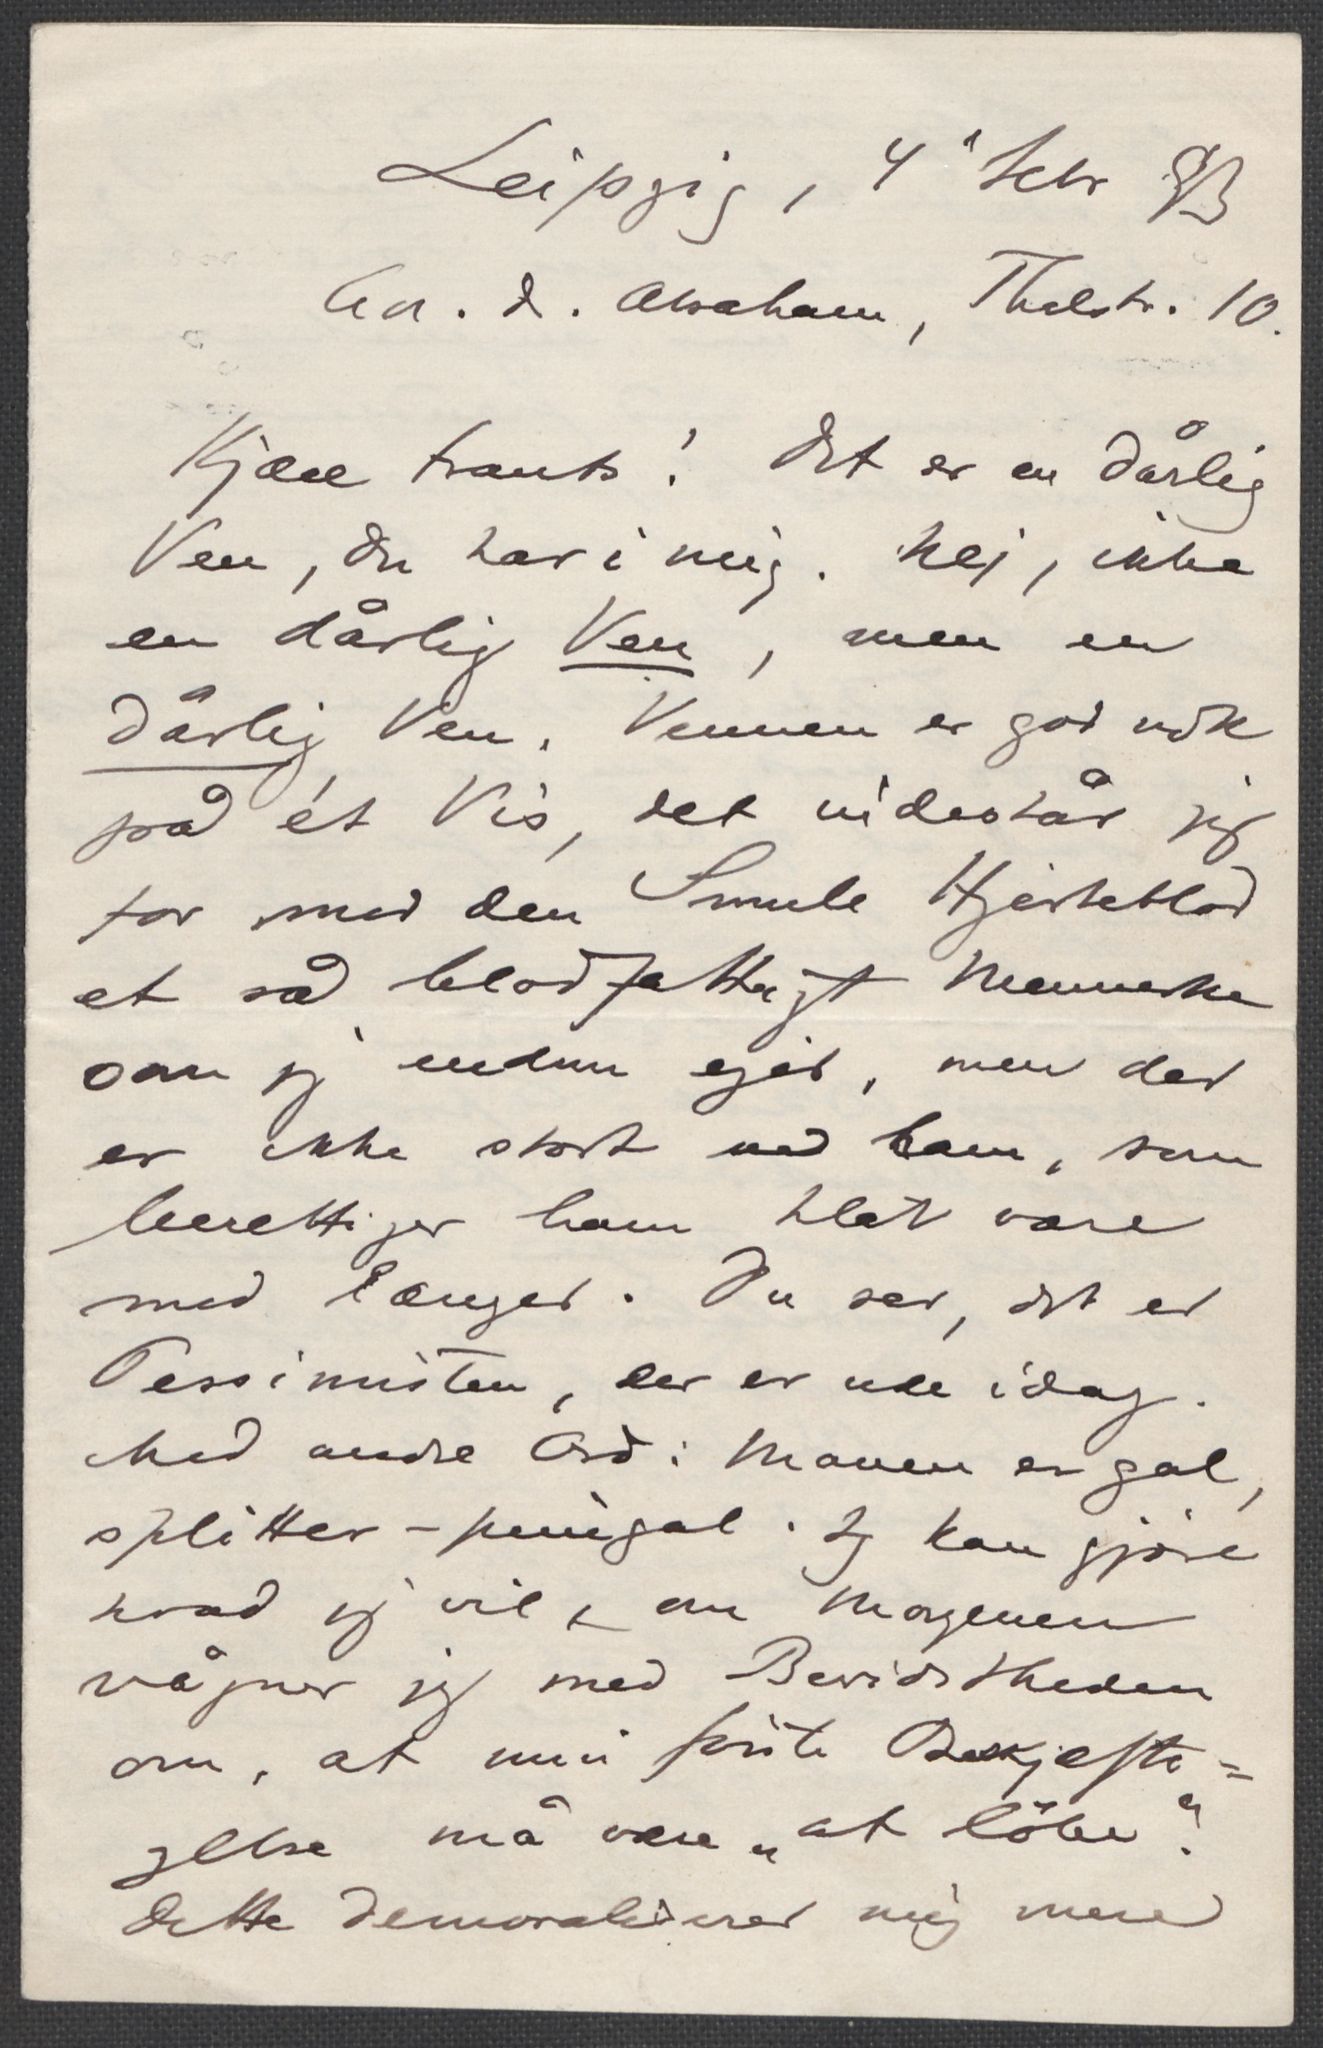 Leipzig, 4' Febr 93
Adr. Dr. Abraham, Thalstr. 10.
Kjære Frants! Det er en dårlig
Ven, du har i mig. Nej, ikke
en dårlig Ven, men en
dårlig Ven. Vennen er god nok
på ét Vis, det indestår jeg
for med den Smule Hjerteblod
et så blodfattigt Menneske
som jeg endnu ejer, men der
er ikke stort ved ham, som
berettiger ham til at være
med længer. Du ser, det er
Pessimisten, der er ude idag.
Med andre Ord: Maven er gal,
splitter-pinegal. Jeg kan gjöre
hvad jeg vil, om Morgenen
vågner jeg med Bevidstheden
om, at min förste Beskjæfti=
gelse må være „at löbe".
Dette demoraliserer mig mere